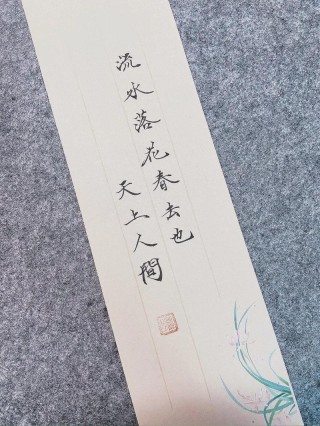 流水落花春去也
天上人間